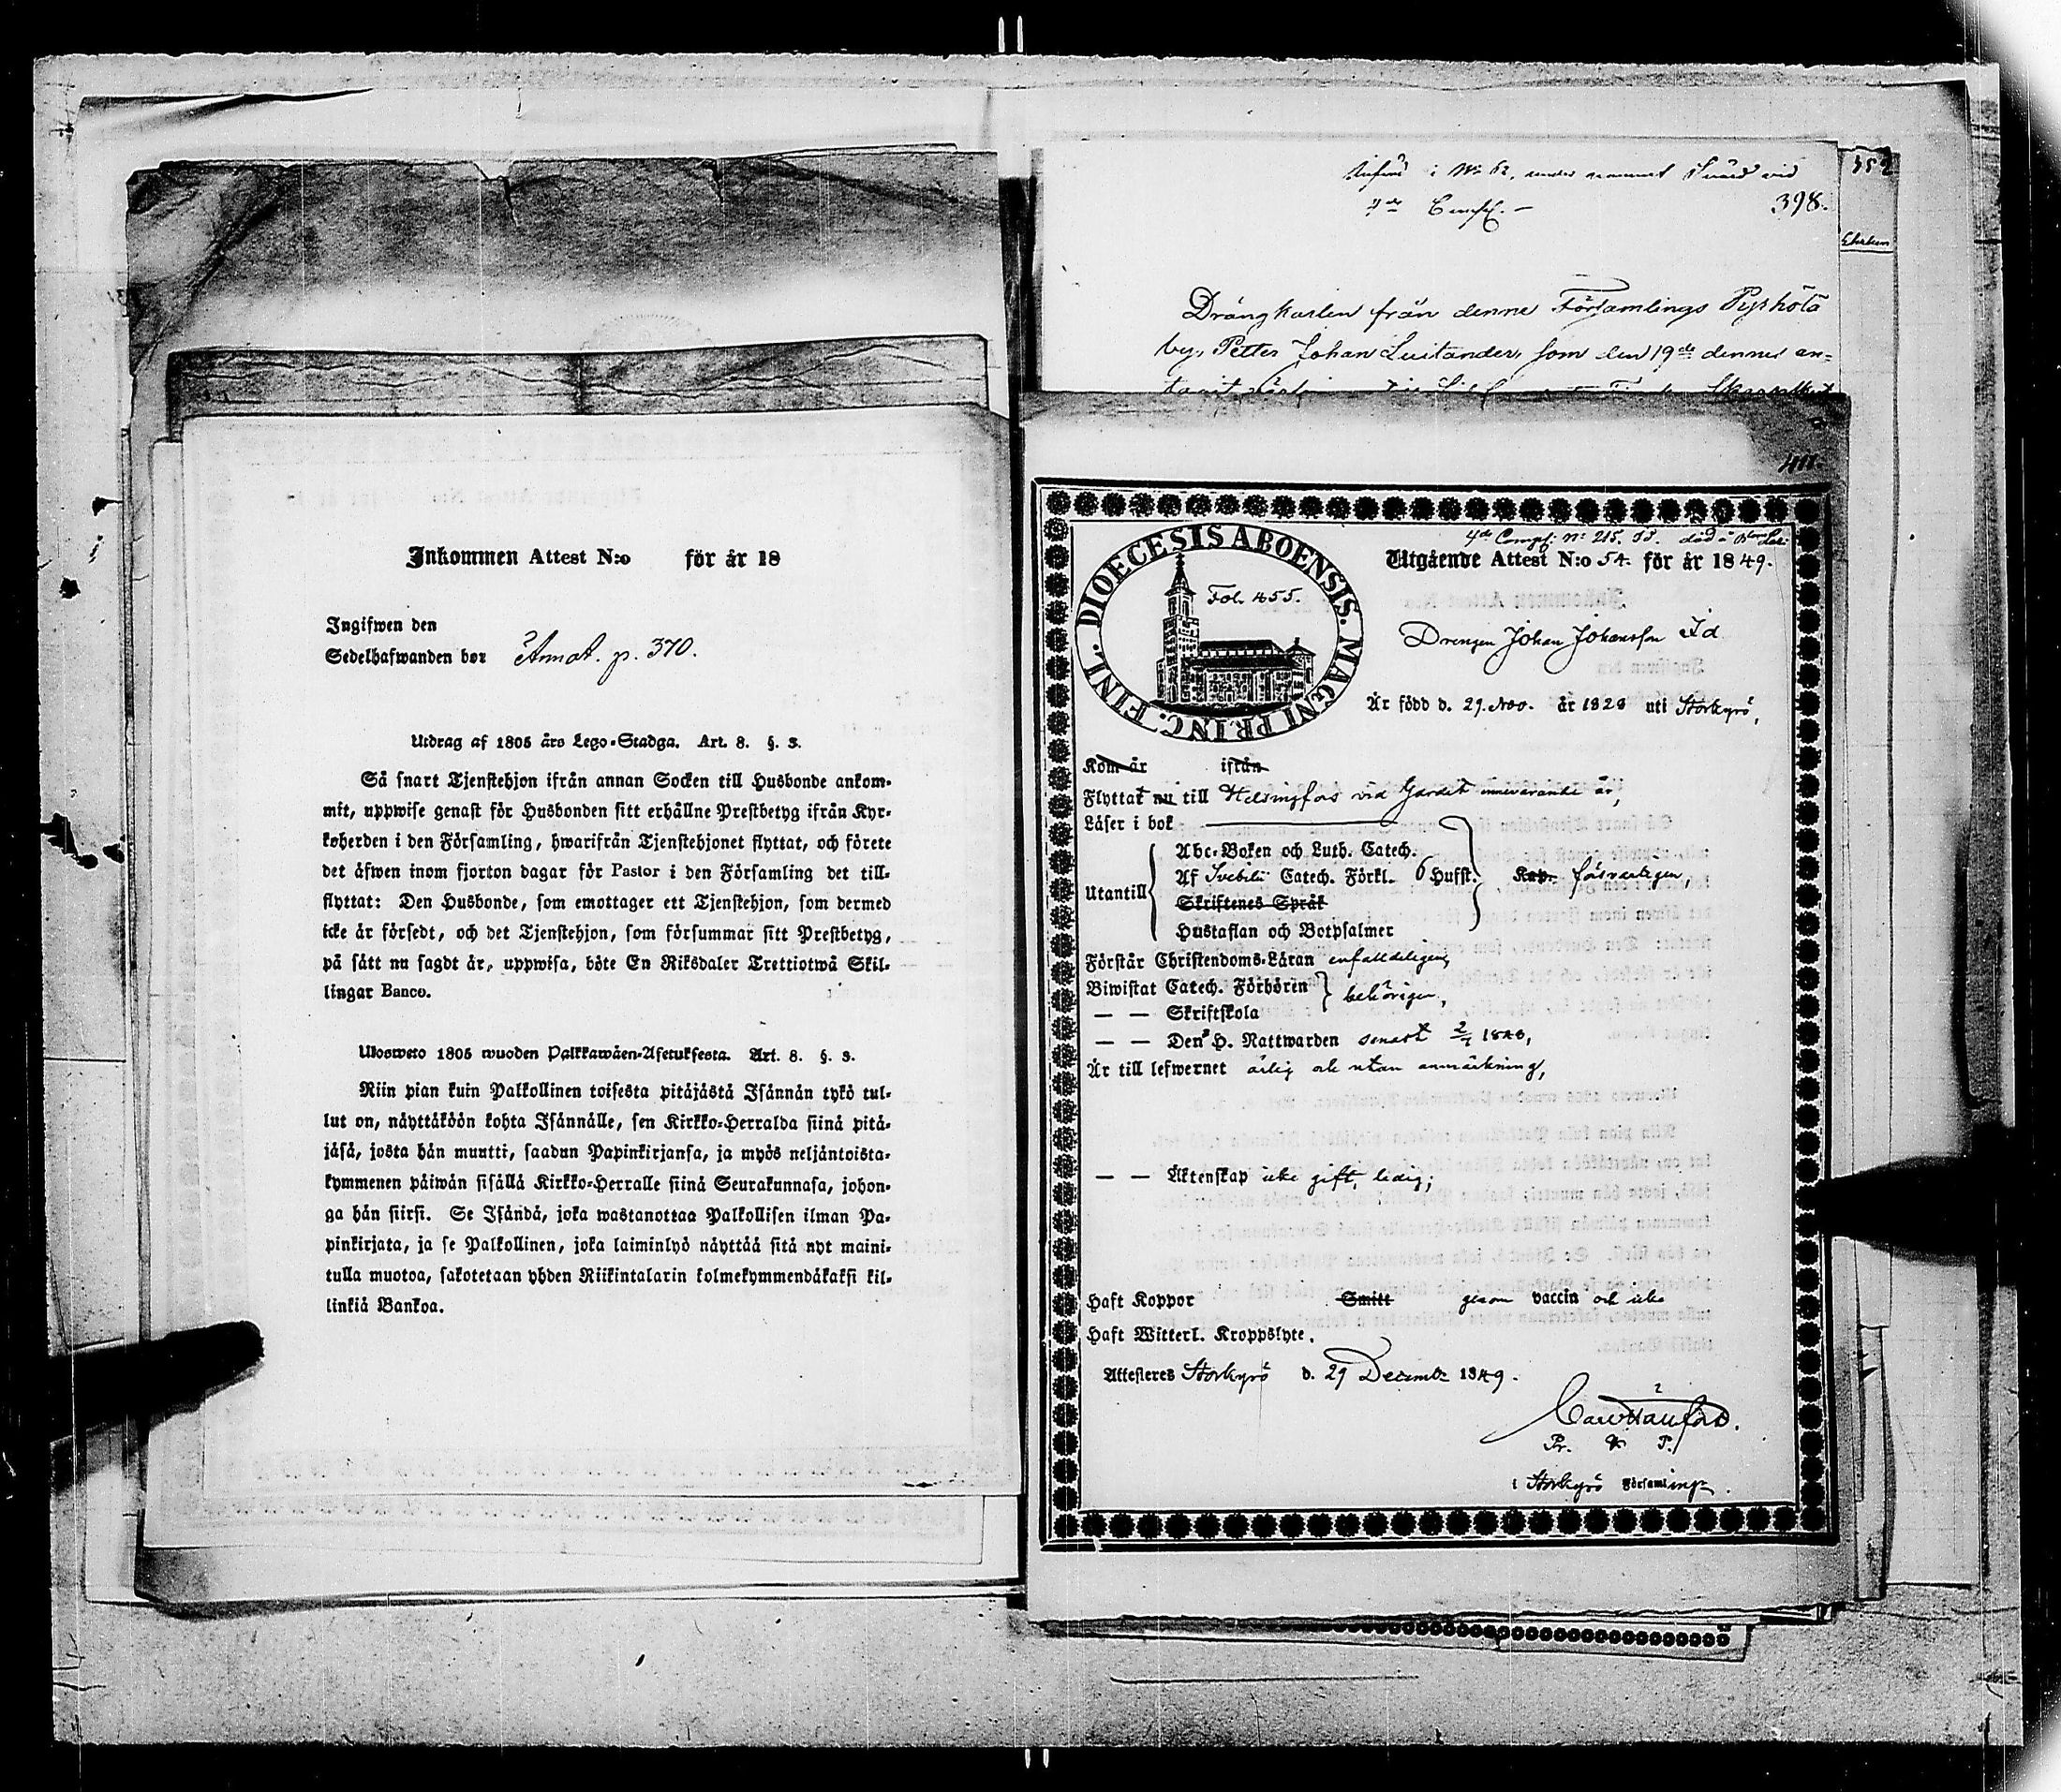 Inkommen Attest N:o för år 18
Ingifwen den
Sedelhafwanden bor Annot. p. 370.
Utdrag af 1805 års Lego-Stadga. Art. 8. §. 3.
Så snart Tjenstehjon ifrån annan Socken till Husbonde ankom-
mit, uppwise genast för Husbonden sitt erhållne Prestbetyg ifrån Kyr-
koherden i den Församling, hwarifrån Tjenstehjonet flyttat, och förete
det äfwen inom fjorton dagar för Pastor i den Församling det till-
flyttat: Den Husbonde, som emottager ett Tjenstehjon, som dermed
icke är försedt, och det Tjenstehjon, som försummar sitt Prestbetyg,
på sätt nu sagdt är, uppwisa, böte En Riksdaler Trettiotwå Skil-
lingar Banco.
Ulosweto 1805 wuoden Palkkawäen-Asetuksesta. Art. 8. §. 3.
Niin pian kuin Palkollinen toisesta pitäjästä Isännän tykö tul-
lut on, näyttäköön kohta Isännälle, sen Kirkko-Herralda siinä pitä-
jäsä, josta hän muutti, saadun Papinkirjansa, ja myös neljäntoista-
kymmenen päiwän sisällä Kirkko-Herralle siinä Seurakunnasa, johon-
ga hän siirsi. Se Isändä, joka wastanottaa Palkollisen ilman Pa-
pinkirjata, ja se Palkollinen, joka laiminlyö näyttää sitä nyt maini-
tulla muotoa, sakotetaan yhden Riikintalarin kolmekymmendäkaksi kil-
linkiä Bankoa.
i N:o 62, under nummet Svärd vid
4de Comp. –
398.
352
Drängkarlen från denne Församlings Pyrhölä
by, Petter Johan Luitander, som den 19de dennes an-
411.
4de Comp: n: 215. död
Utgående Attest N:o 54. för år 1849.
DIOECESIS ABOENSIS. MAGNI PRINC. FINL.
Fol. 455.
Drengen Johan Johansson Id
Är född d. 29. Nov. år 1828 uti Storkyrö,
Kom år ifrån
Flyttat nu till Helsingfors vid Gardet innevarande år,
Läser i bok
Abc-Boken och Luth. Catech.
Utantill Af Svebilii Catech. Förkl. 6 Hufst. Kap. försvarligen,
Skriftenes Språk
Hustaflan och Botpsalmer
Förstår Christendoms-Läran enfalldeligen,
Biwistat Catech. Förhören behörigen,
— — Skriftskola
— — Den H. Nattwarden senast 2/7 1848,
Är till lefwernet ärlig och utan anmärkning,
— — Äktenskap icke gift, ledig;
Haft Koppor Smitt genom vaccin och icke
Haft Witterl. Kroppslyte.
Attesteres Storkyrö d. 29 Decemb: 1849.
Pr. & P.
i Storkyrö Församling.